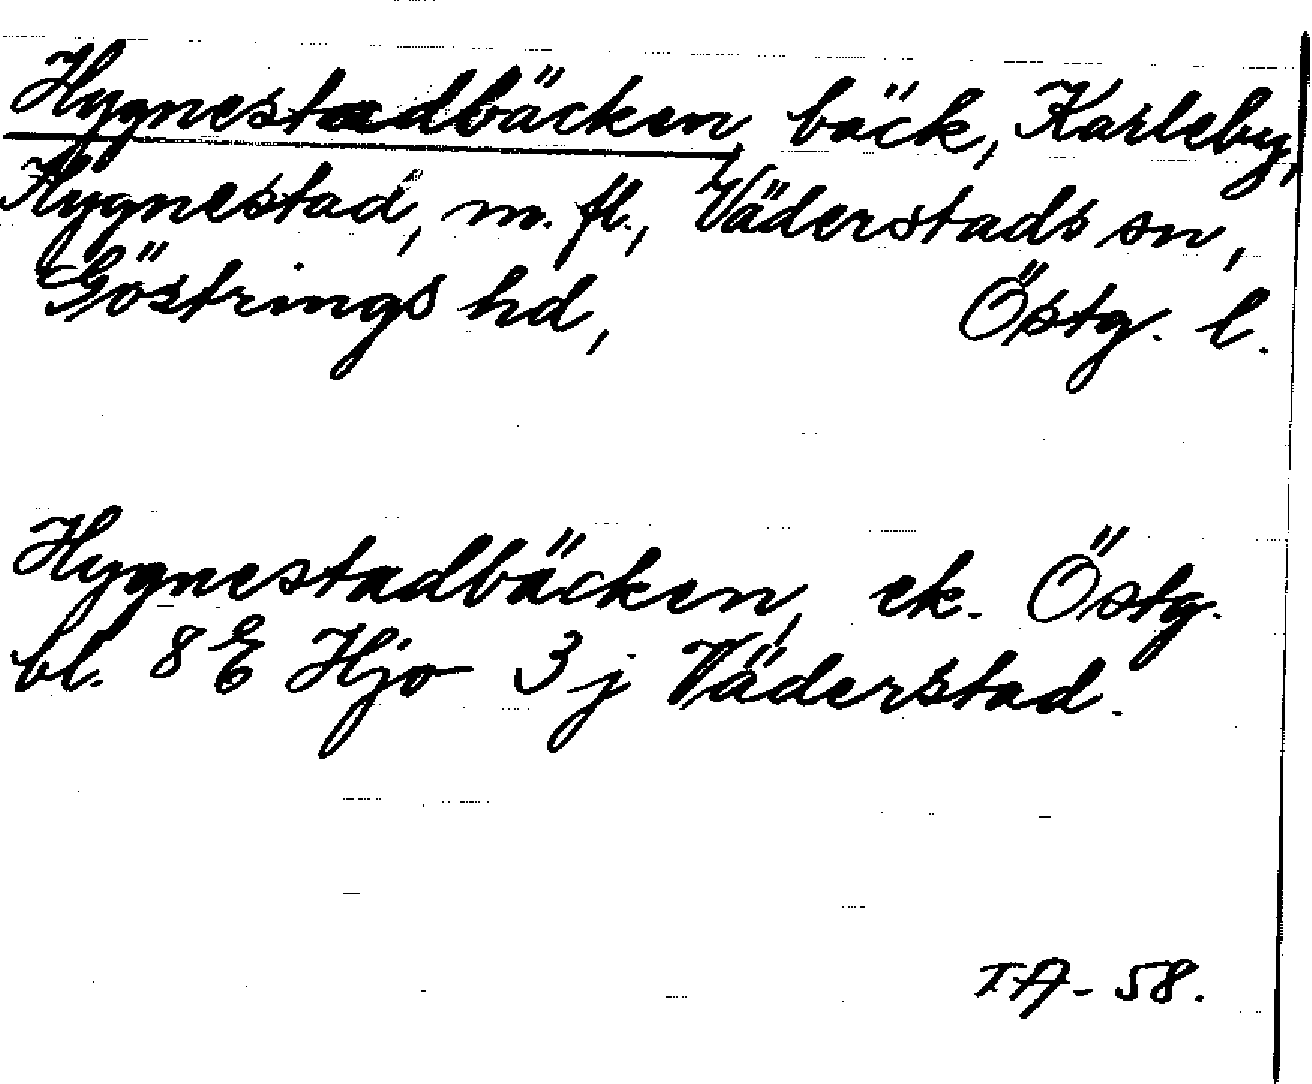 Hygnestadbäcken, bäck, Karleby,
Hygnestad, m. fl., Väderstads sn,
Göstrings hd, Östg. l.
Hygnestadbäcken, ek. Östg.
bl. 8 E Hjo 3 j Väderstad.
T.A-58.